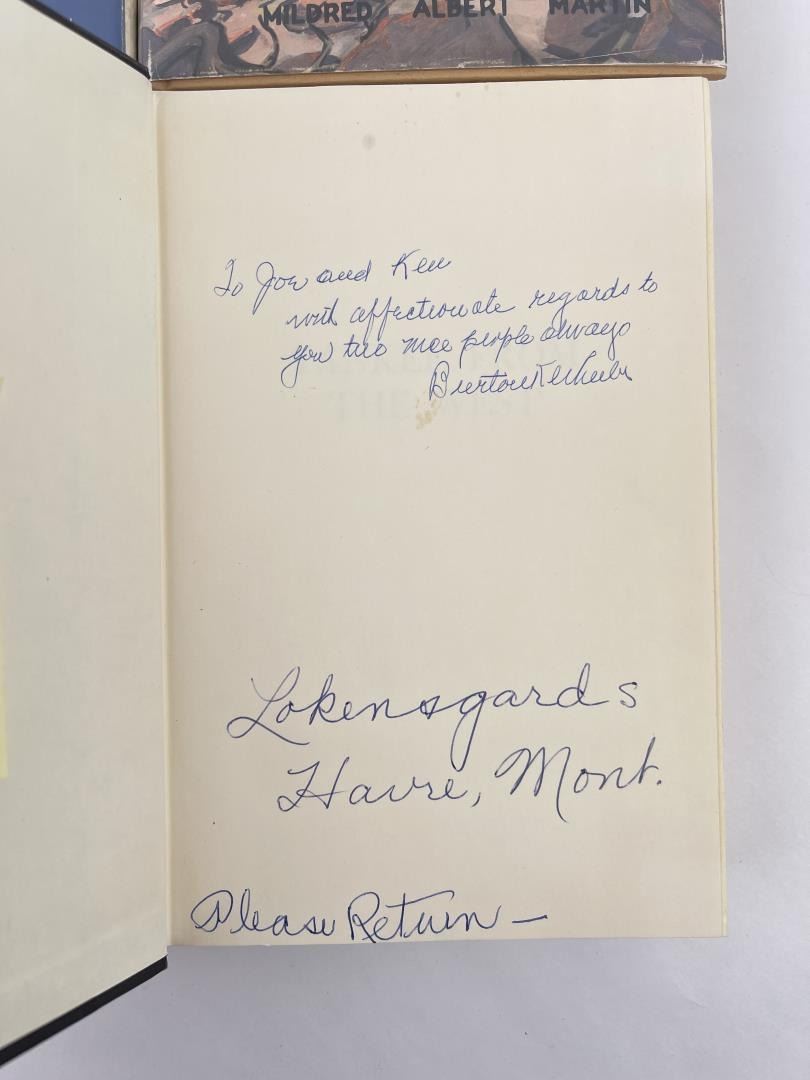 MILDRED ALBERT MARTIN
To Joy and Ken
with affectionate regards to
you two nice people always
Burton K Wheeler
THE WEST
Lokensgards
Havre, Mont.
Please Return —